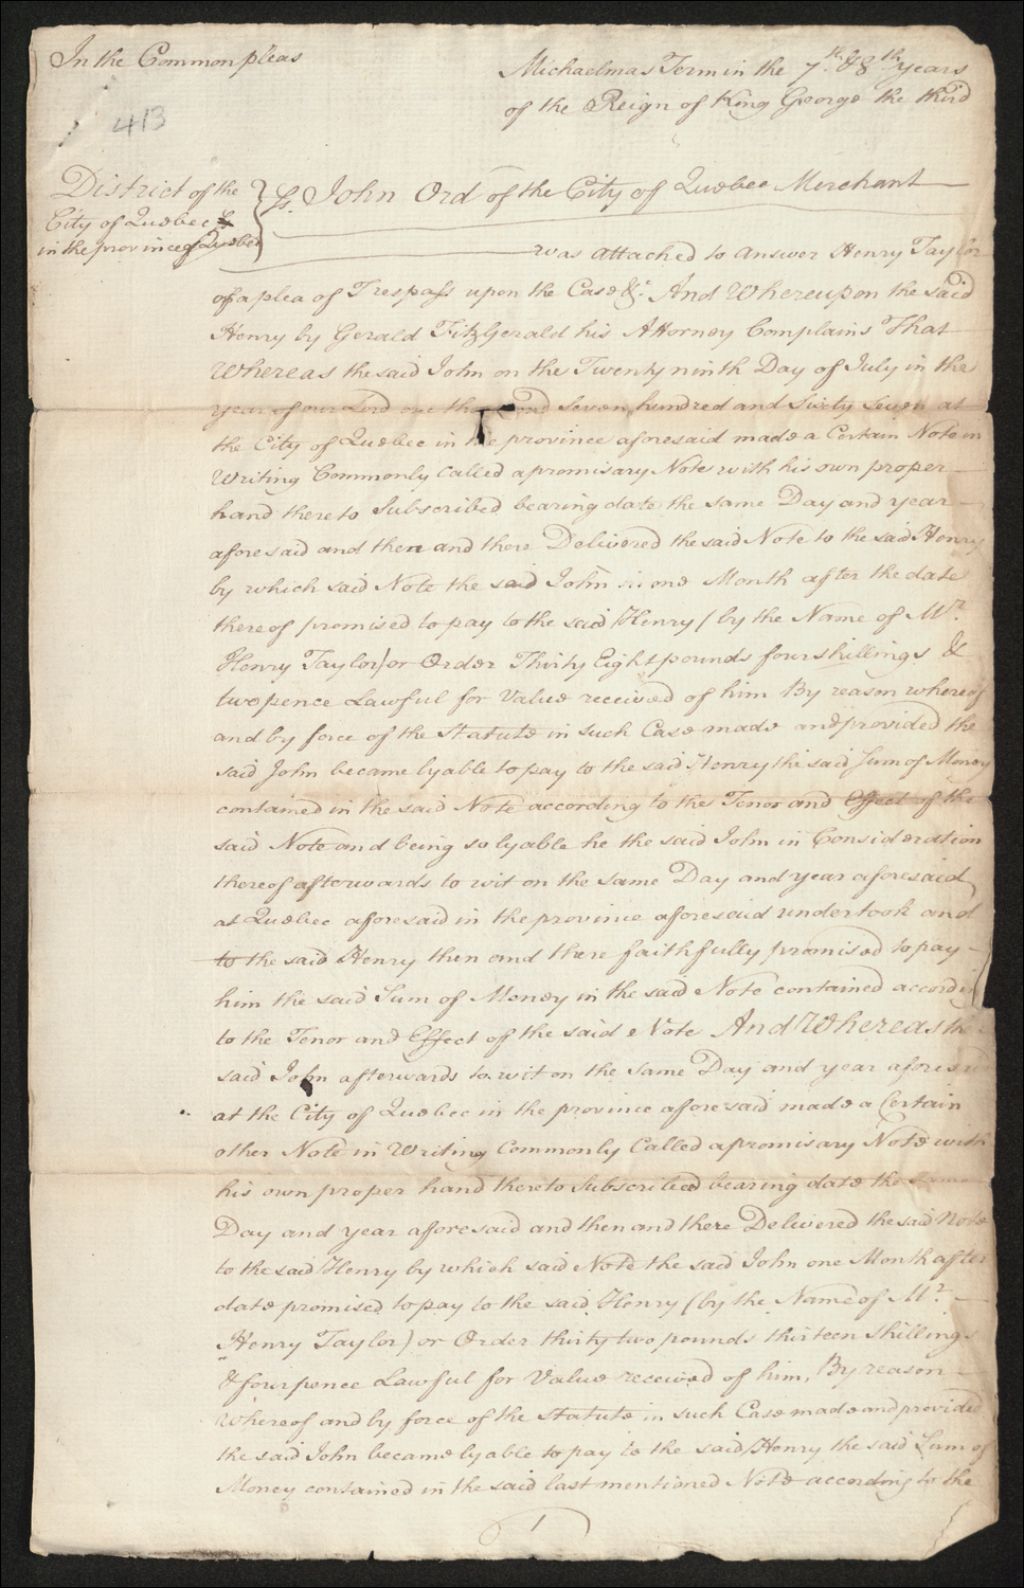 In the Common pleas
Michaelmas Term in the 7th & 8th years
of the Reign of King George the third
413
District of the
City of Quebec &
in the province of Quebec
Ss. John Ord of the City of Quebec Merchant
was attached to answer Henry Taylor
of a plea of Trespass upon the Case &c. And Whereupon the said
Henry by Gerald FitzGerald his Attorney Complains That
Whereas the said John on the Twenty ninth Day of July in the
year of our Lord one thousand Seven hundred and Sixty Seven at
the City of Quebec in the province aforesaid made a Certain Note in
Writing Commonly Called a promisary Note with his own proper
hand thereto Subscribed bearing date the same Day and year
aforesaid and then and there Delivered the said Note to the said Henry
by which said Note the said John in one Month after the date
thereof promised to pay to the said Henry (by the Name of Mr.
Henry Taylor) or Order Thirty Eight pounds four shillings &
two pence Lawful for Value received of him By reason whereof
and by force of the Statute in such Case made and provided the
said John became lyable to pay to the said Henry the said Sum of Money
contained in the said Note according to the Tenor and Effect of the
said Note and being so lyable he the said John in Consideration
thereof afterwards to wit on the same Day and year aforesaid
at Quebec aforesaid in the province aforesaid undertook and
to the said Henry then and there faithfully promised to pay
him the said Sum of Money in the said Note contained according
to the Tenor and Effect of the said Note And Whereas the
said John afterwards to wit on the same Day and year aforesaid
at the City of Quebec in the province aforesaid made a Certain
other Note in Writing Commonly Called a promisary Note with
his own proper hand thereto Subscribed bearing date the same
Day and year aforesaid and then and there Delivered the said Note
to the said Henry by which said Note the said John one Month after
date promised to pay to the said Henry (by the Name of Mr.
Henry Taylor) or Order thirty two pounds thirteen Shillings
& four pence Lawful for Value received of him, By reason
whereof and by force of the Statute in such Case made and provided
the said John became lyable to pay to the said Henry the said Sum of
Money contained in the said last mentioned Note according to the
1